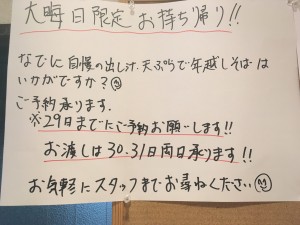 大晦日限定お持ち帰り!!
なでに自慢の出し汁、天ぷらで年越しそばは
いかがですか?
ご予約承ります.
※29日までにご予約お願いします!!
お渡しは30.31日両日承ります!!
お気軽にスタッフまでお尋ねください